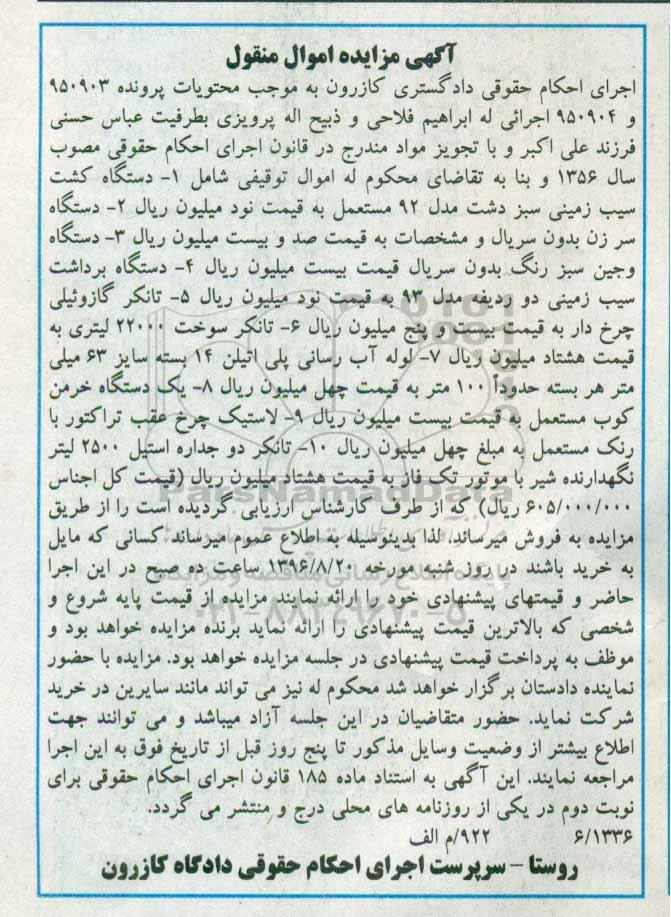 آگهی مزایده اموال منقول
اجرای احکام حقوقی دادگستری کازرون به موجب محتویات پرونده ۹۵۰۹۰۳
و ۹۵۰۹۰۴ اجرائی له ابراهیم فلاحی و ذبیح اله پرویزی بطرفیت عباس حسنی
فرزند علی اکبر و با تجویز مواد مندرج در قانون اجرای احکام حقوقی مصوب
سال ۱۳۵۶ و بنا به تقاضای محکوم له اموال توقیفی شامل ۱- دستگاه کشت
سیب زمینی سبز دشت مدل ۹۲ مستعمل به قیمت نود میلیون ریال ۲- دستگاه
سر زن بدون سریال و مشخصات به قیمت صد و بیست میلیون ریال ۳- دستگاه
وجین سبز رنگ بدون سریال قیمت بیست میلیون ریال ۴- دستگاه برداشت
سیب زمینی دو ردیفه مدل ۹۳ به قیمت نود میلیون ریال ۵- تانکر گازوئیلی
چرخ دار به قیمت بیست و پنج میلیون ریال ۶- تانکر سوخت ۲۲۰۰۰ لیتری به
قیمت هشتاد میلیون ریال ۷- لوله آب رسانی پلی اتیلن ۱۴ بسته سایز ۶۳ میلی
متر هر بسته حدوداً ۱۰۰ متر به قیمت چهل میلیون ریال ۸- یک دستگاه خرمن
کوب مستعمل به قیمت بیست میلیون ریال ۹- لاستیک چرخ عقب تراکتور با
رنک مستعمل به مبلغ چهل میلیون ریال ۱۰- تانکر دو جداره استیل ۲۵۰۰ لیتر
نگهدارنده شیر با موتور تک فاز به قیمت هشتاد میلیون ریال (قیمت کل اجناس
۶۰۵/۰۰۰/۰۰۰ ریال) که از طرف کارشناس ارزیابی گردیده است را از طریق
مزایده به فروش میرساند. لذا بدینوسیله به اطلاع عموم میرساند کسانی که مایل
به خرید باشند در روز شنبه مورخه ۱۳۹۶/۸/۲۰ ساعت ده صبح در این اجرا
حاضر و قیمتهای پیشنهادی خود را ارائه نمایند مزایده از قیمت پایه شروع و
شخصی که بالاترین قیمت پیشنهادی را ارائه نماید برنده مزایده خواهد بود و
موظف به پرداخت قیمت پیشنهادی در جلسه مزایده خواهد بود. مزایده با حضور
نماینده دادستان برگزار خواهد شد محکوم له نیز می تواند مانند سایرین در خرید
شرکت نماید. حضور متقاضیان در این جلسه آزاد میباشد و می توانند جهت
اطلاع بیشتر از وضعیت وسایل مذکور تا پنج روز قبل از تاریخ فوق به این اجرا
مراجعه نمایند. این آگهی به استناد ماده ۱۸۵ قانون اجرای احکام حقوقی برای
نوبت دوم در یکی از روزنامه های محلی درج و منتشر می گردد.
۶/۱۳۳۶ ۹۲۲/م الف
روستا - سرپرست اجرای احکام حقوقی دادگاه کازرون
ParsNamadData
۰۲۱-۸۸۳۴۹۶۷۰-۵